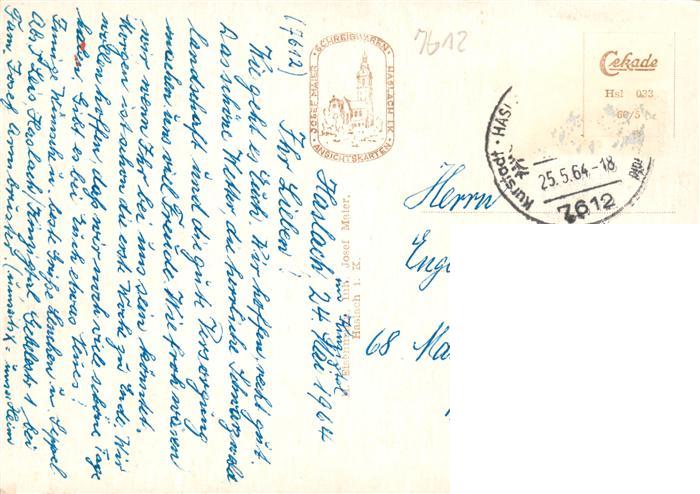 (7612)
Haslach 24 Mai 1964
im Kinzigtal
Ihr Lieben!
Wie geht es Euch. Wir hoffen, recht gut.
Das schöne Wetter, die herrliche Schwarzwald
landschaft und die gute Versorgung
machen uns viel Freude. Wie froh wären
wir wenn Ihr bei uns sein könntet.
Morgen ist schon die erste Woche zu Ende. Wir
wollen hoffen, daß wir noch viele schöne Tage
haben. Gibt es bei Euch etwas Neues?
Innige Wünsche u. beste Grüße Lenchen u. Seppel
Haslach/Kinzigtal, bei
Fam Josef Armbruster.
7612
JOSEF MAIER · SCHREIBWAREN · HASLACH I.K.
· ANSICHTSKARTEN ·
Inh. Josef Maier,
Haslach i. K.
Cekade
Hsl 033
60/5
Kurstadt · HAS
25.5.64.-18
7612
Herrn
Enge
68 Ma